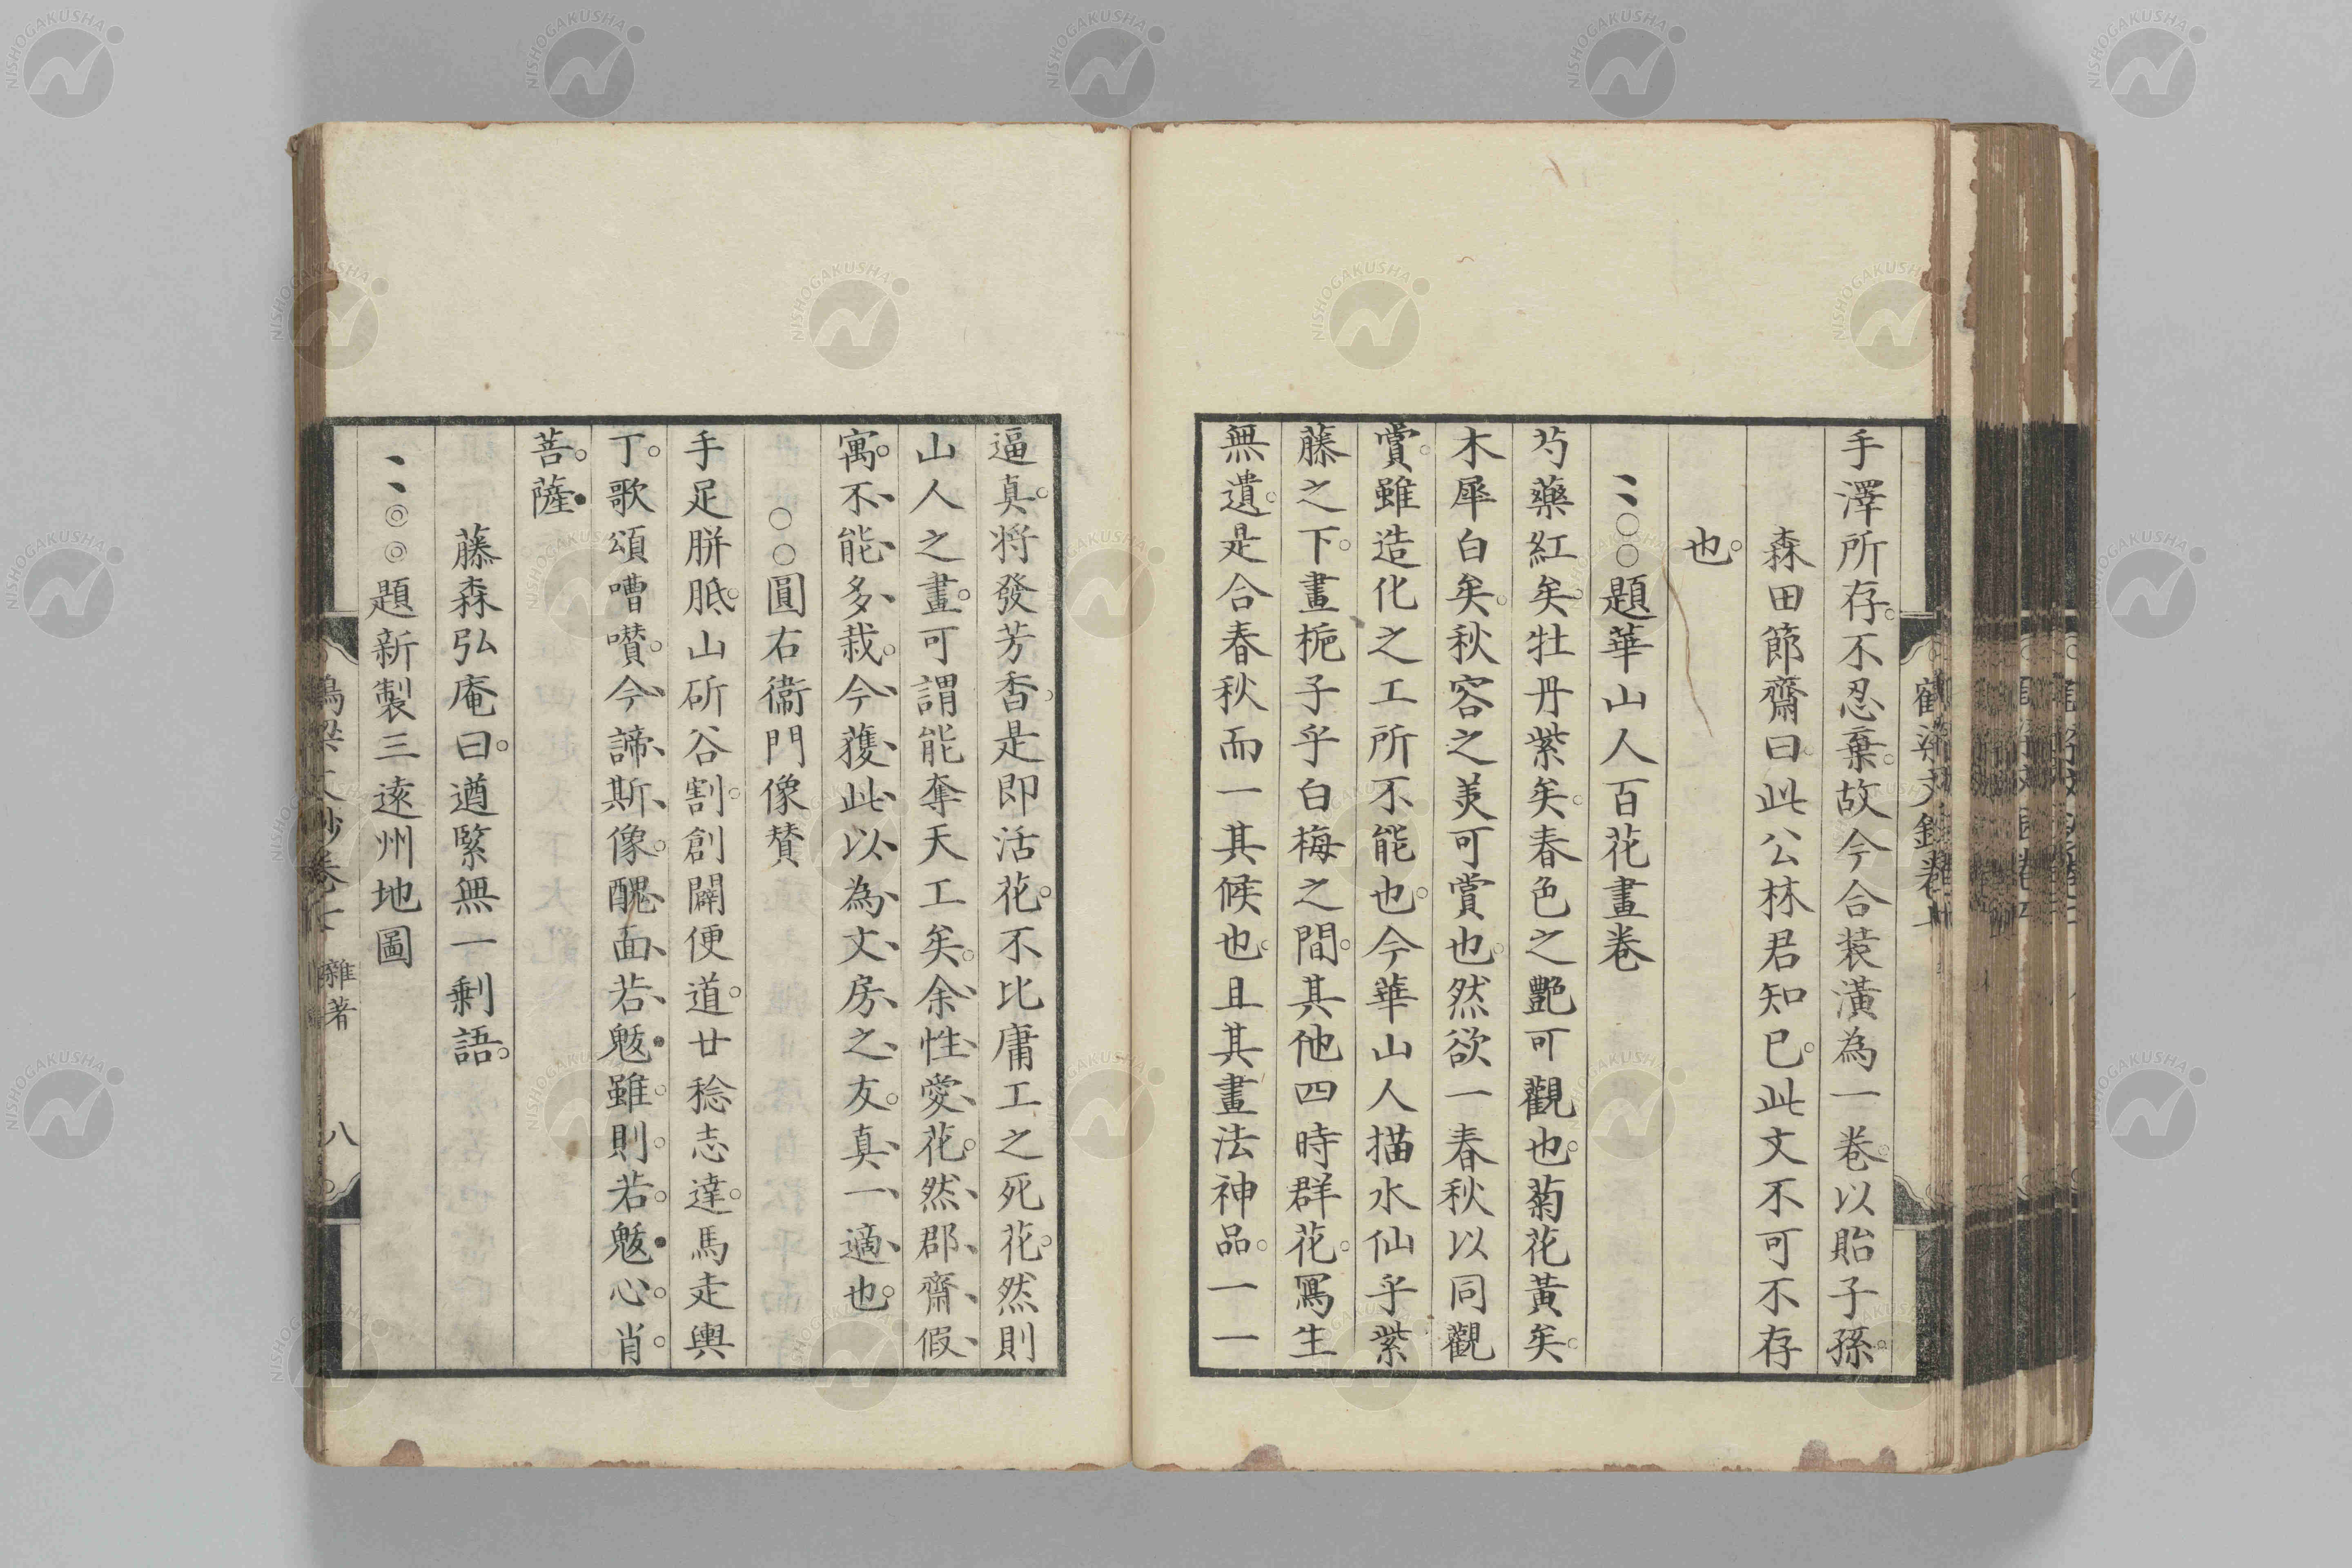 手澤所存。不忍棄。故今合装潢為一卷。以貽子孫。
森田節齋曰。此公林君知已。此文不可不存
也。
、、○○題華山人百花畫卷
芍藥紅矣。牡丹紫矣。春色之艷可觀也。菊花黃矣。
木犀白矣。秋容之美可賞也。然欲一春秋以同觀
賞。雖造化之工所不能也。今華山人描水仙乎紫
藤之下。畫梔子乎白梅之間。其他四時群花。寫生
無遺。是合春秋而一其候也。且其畫法神品。一一
逼真。将發芳香。是即活花。不比庸工之死花。然則
山人之畫。可謂能奪天工矣。余性愛花。然郡齋假
寓。不能多栽。今獲此以為文房之友。真一適也。
○○圓右衞門像賛
手足胼胝。山斫谷割。創闢便道。廿稔志達。馬走輿
丁。歌頌嘈囋。今諦斯像。醜面若魃。雖則若魃。心肖
菩薩。
藤森弘庵曰。遒緊無一剩語。
、、◎◎題新製三遠州地圖
雜著
八
NISHOGAKUSHA